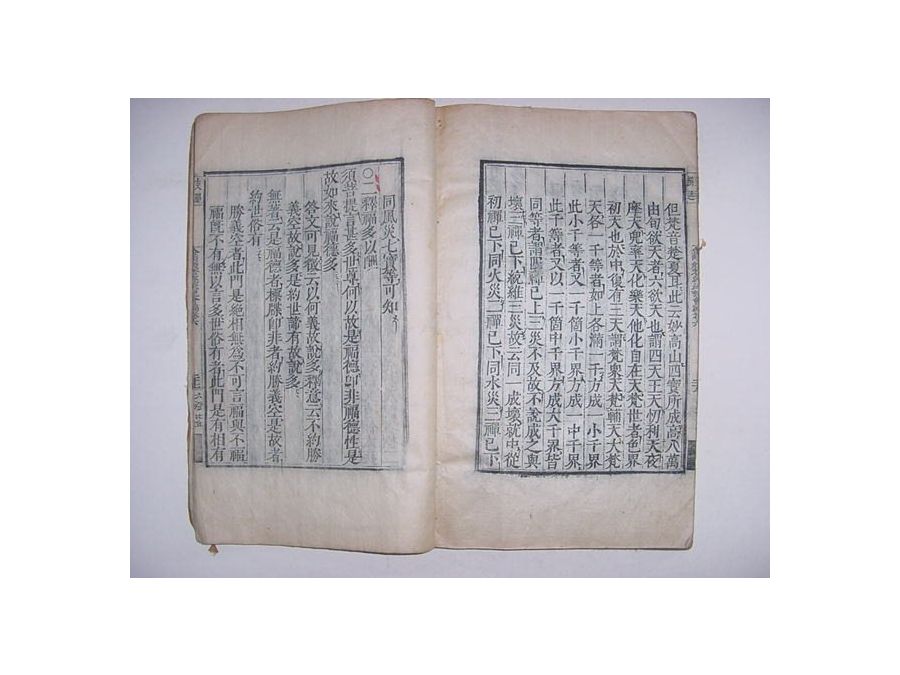 但梵音楚夏耳此云妙高山四寶所成高八萬
由旬欲天者六欲天也謂四天王天忉利天夜
摩天兜率天化樂天他化自在天梵世者色界
初天也於中復有三天謂梵衆天梵輔天大梵
天各一千等者如上各滿一千方成一小千界
此小千等者又一千箇小千界方成一中千界
此千等者又以一千箇中千界方成大千界皆
同等者謂四禪已上三災不及故不說成之與
壞三禪已下統維三災故云同一成壞就中從
初禪已下同火災二禪已下同水災三禪已下
同風災七寶等可知
○二釋福多以酬
須菩提言甚多世尊何以故是福德即非福德性是
故如來說福德多
答文可見徵云以何義故說多釋意云不約勝
義空故說多是約世諦有故說多
無著云是福德者標牒即非者約勝義空是故者
約世俗有
勝義空者此門是絕相無爲不可言福與不福
福旣不有無以言多世俗有者此門是有相有